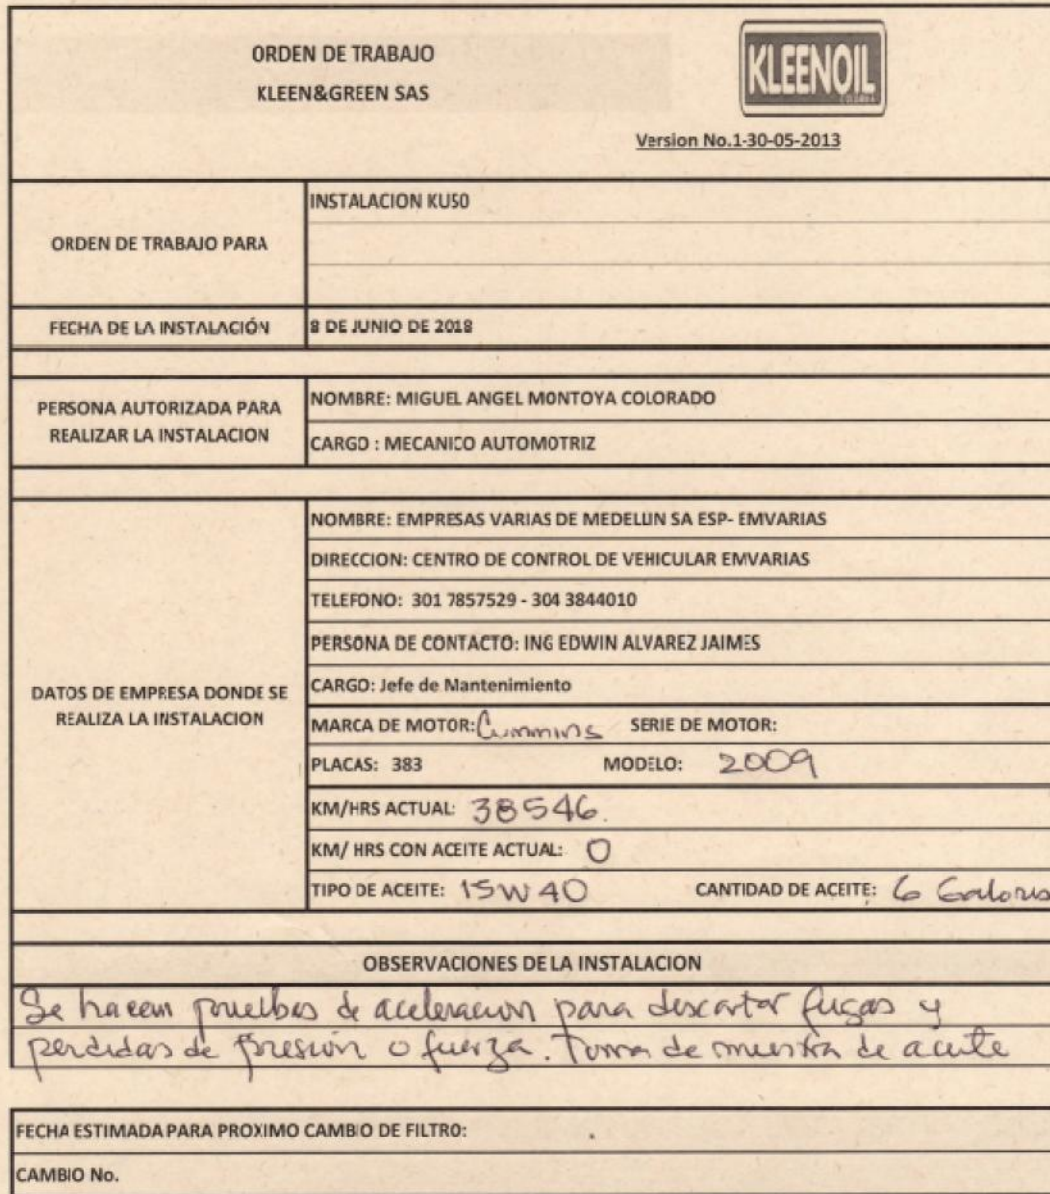 ORDEN DE TRABAJO
KLEEN&GREEN SAS
KLEENOIL
Version No.1-30-05-2013
ORDEN DE TRABAJO PARA
INSTALACION KU50
FECHA DE LA INSTALACIÓN
8 DE JUNIO DE 2018
PERSONA AUTORIZADA PARA
REALIZAR LA INSTALACION
NOMBRE: MIGUEL ANGEL MONTOYA COLORADO
CARGO : MECANICO AUTOMOTRIZ
DATOS DE EMPRESA DONDE SE
REALIZA LA INSTALACION
NOMBRE: EMPRESAS VARIAS DE MEDELLIN SA ESP- EMVARIAS
DIRECCION: CENTRO DE CONTROL DE VEHICULAR EMVARIAS
TELEFONO: 301 7857529 - 304 3844010
PERSONA DE CONTACTO: ING EDWIN ALVAREZ JAIMES
CARGO: Jefe de Mantenimiento
MARCA DE MOTOR: Cummins SERIE DE MOTOR:
PLACAS: 383 MODELO: 2009
KM/HRS ACTUAL: 38546.
KM/ HRS CON ACEITE ACTUAL: 0
TIPO DE ACEITE: 15W40 CANTIDAD DE ACEITE: 6 Galones
OBSERVACIONES DE LA INSTALACION
Se hacen pruebas de aceleracion para descartar fugas y
perdidas de presion o fuerza. Toma de muestra de aceite
FECHA ESTIMADA PARA PROXIMO CAMBIO DE FILTRO:
CAMBIO No.